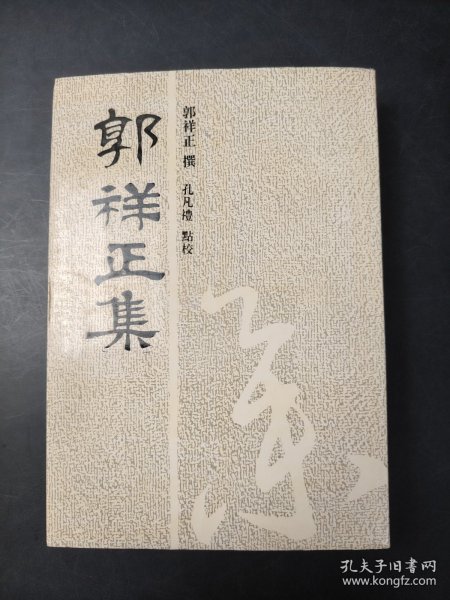 郭祥正集
郭祥正 撰 孔凡禮 點校
孔夫子旧书网
www.kongfz.com